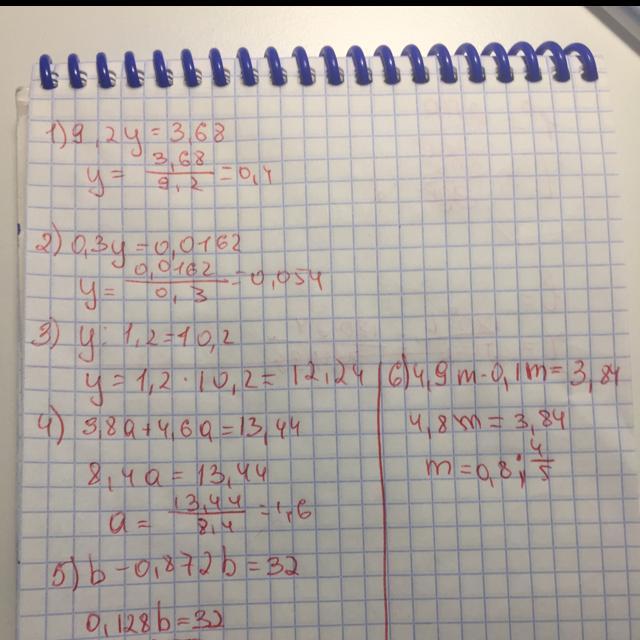 1) 9,2y = 3,68
y = 3,68/9,2 = 0,4
2) 0,3y = 0,0162
y = 0,0162/0,3 = 0,054
3) y : 1,2 = 10,2
y = 1,2 · 10,2 = 12,24
4) 3,8a + 4,6a = 13,44
8,4a = 13,44
a = 13,44/8,4 = 1,6
5) b - 0,872b = 32
0,128b = 32
6) 4,9m - 0,1m = 3,84
4,8m = 3,84
m = 0,8; 4/5